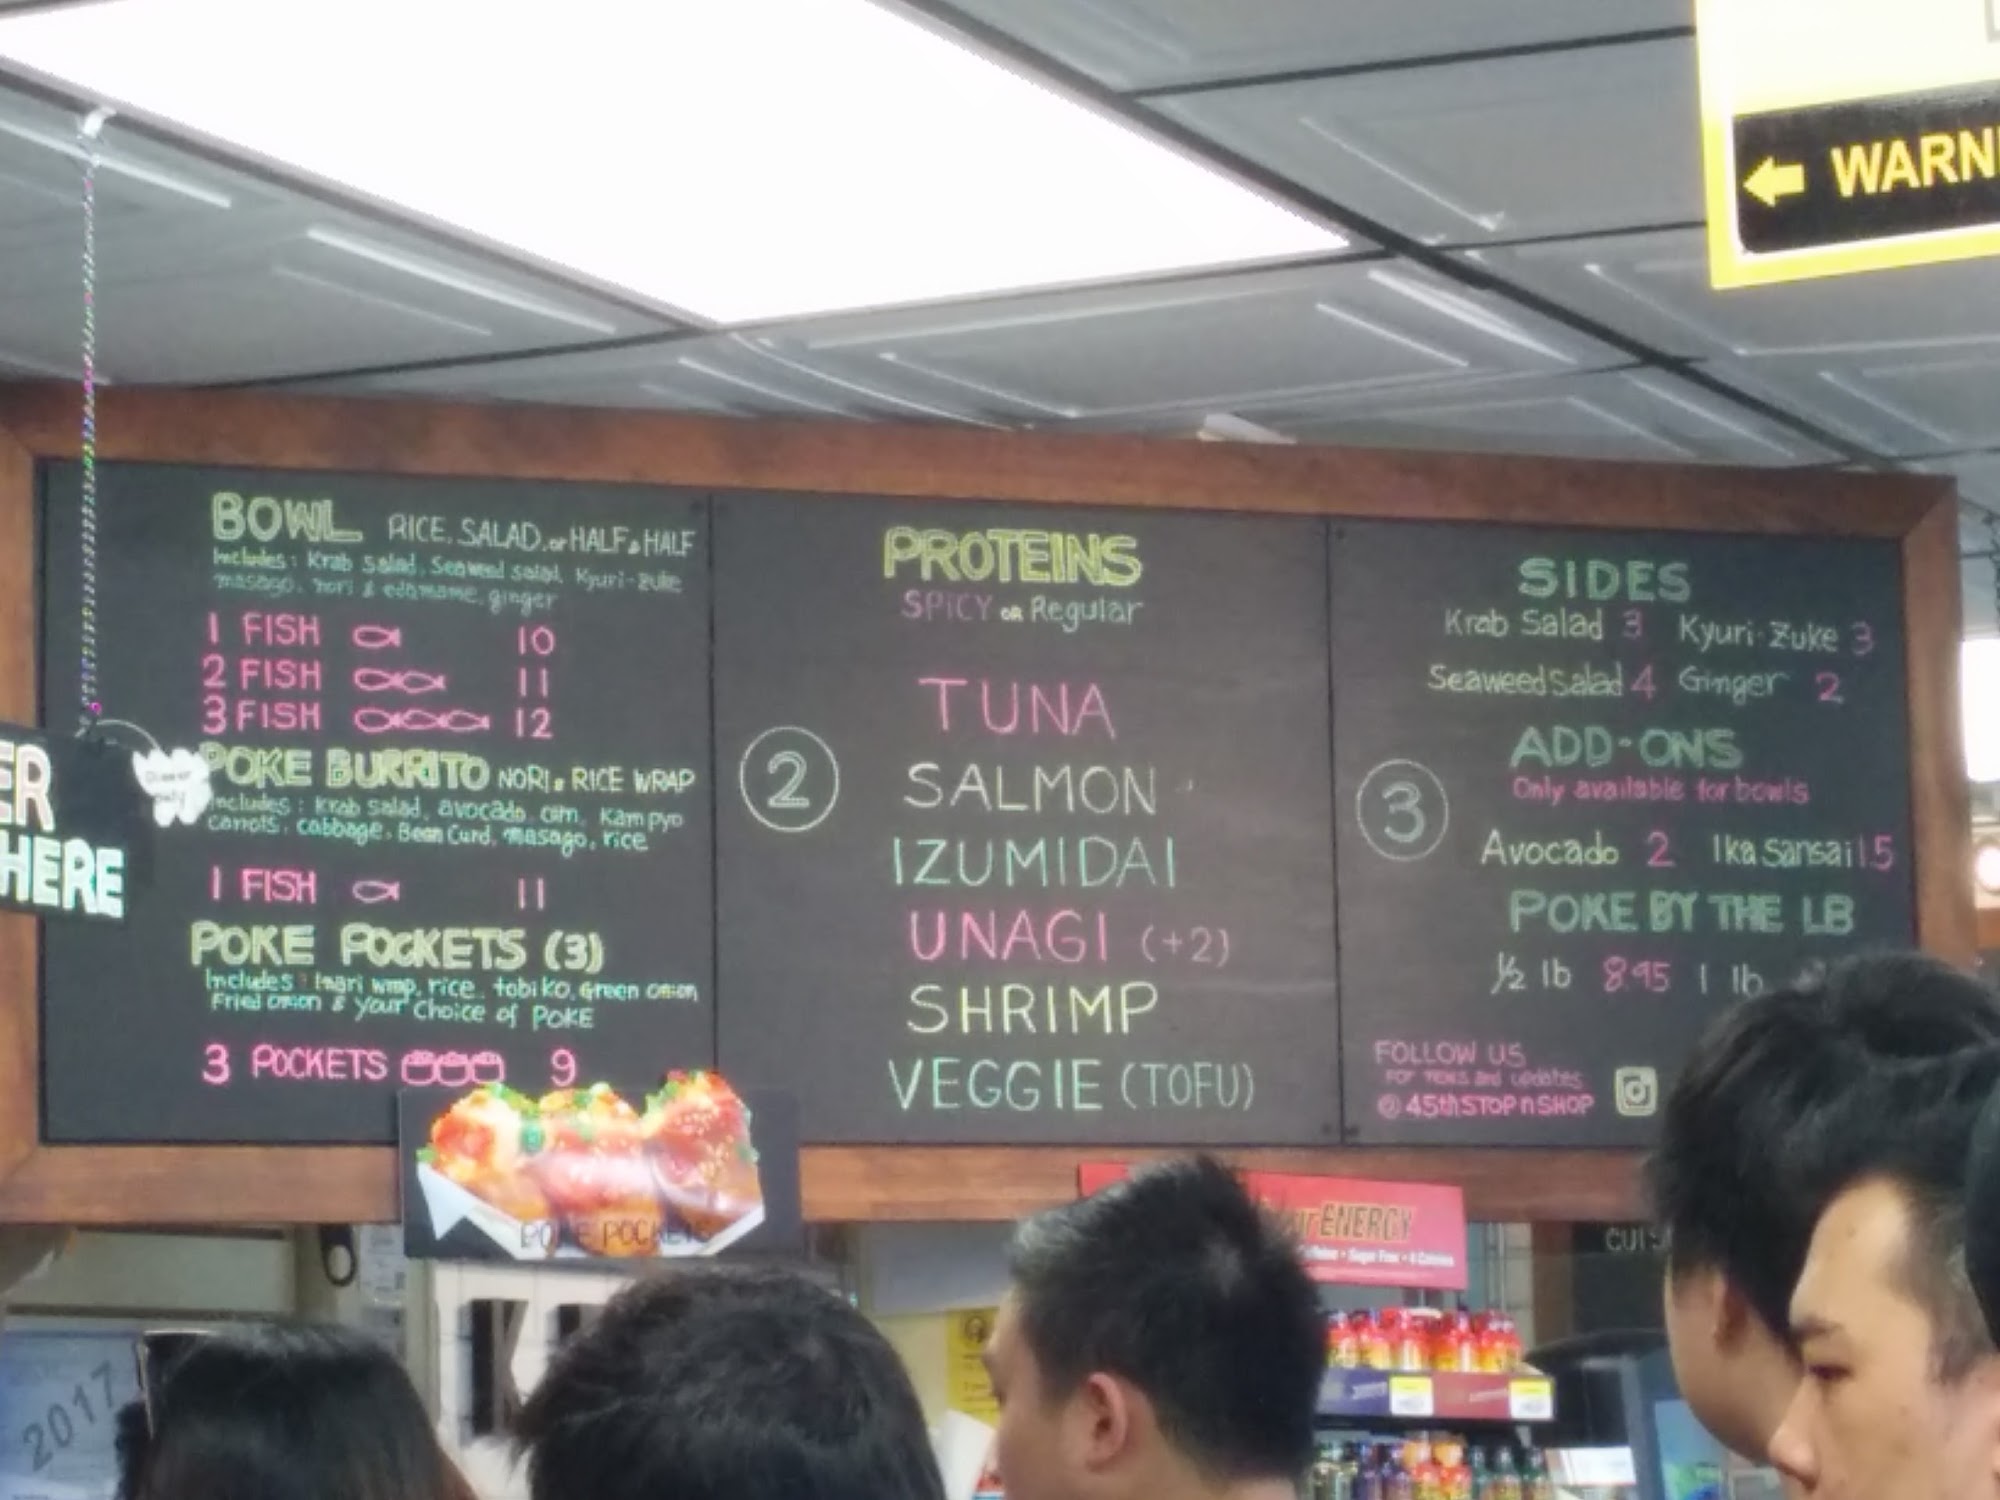 WARN
BOWL RICE, SALAD, or HALF & HALF
Includes: Krab salad, Seaweed salad, Kyuri-zuke
masago, nori & edamame, ginger
1 FISH 10
2 FISH 11
3 FISH 12
POKE BURRITO NORI & RICE WRAP
Includes: Krab salad, avocado, Kampyo
carrots, cabbage, Bean Curd, masago, rice
1 FISH 11
POKE POCKETS (3)
Includes: Inari wrap, rice, tobiko, Green onion
Fried onion & your choice of POKE
3 POCKETS 9
POKE POCKETS
ER
HERE
Dinner
only
2
PROTEINS
SPICY OR Regular
TUNA
SALMON
IZUMIDAI
UNAGI (+2)
SHRIMP
VEGGIE (TOFU)
3
SIDES
Krab Salad 3 Kyuri-Zuke 3
Seaweed Salad 4 Ginger 2
ADD-ONS
Only available for bowls
Avocado 2 Ika Sansai 1.5
POKE BY THE LB
1/2 lb 8.95 1 lb
FOLLOW US
For news and updates
@45thSTOPnSHOP
ENERGY
Sugar Free • 4 Calories
2017